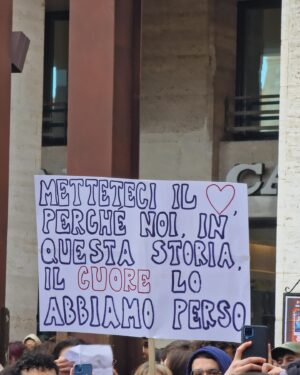 METTETECI IL ♡,
PERCHÉ NOI, IN
QUESTA STORIA,
IL CUORE LO
ABBIAMO PERSO
CA